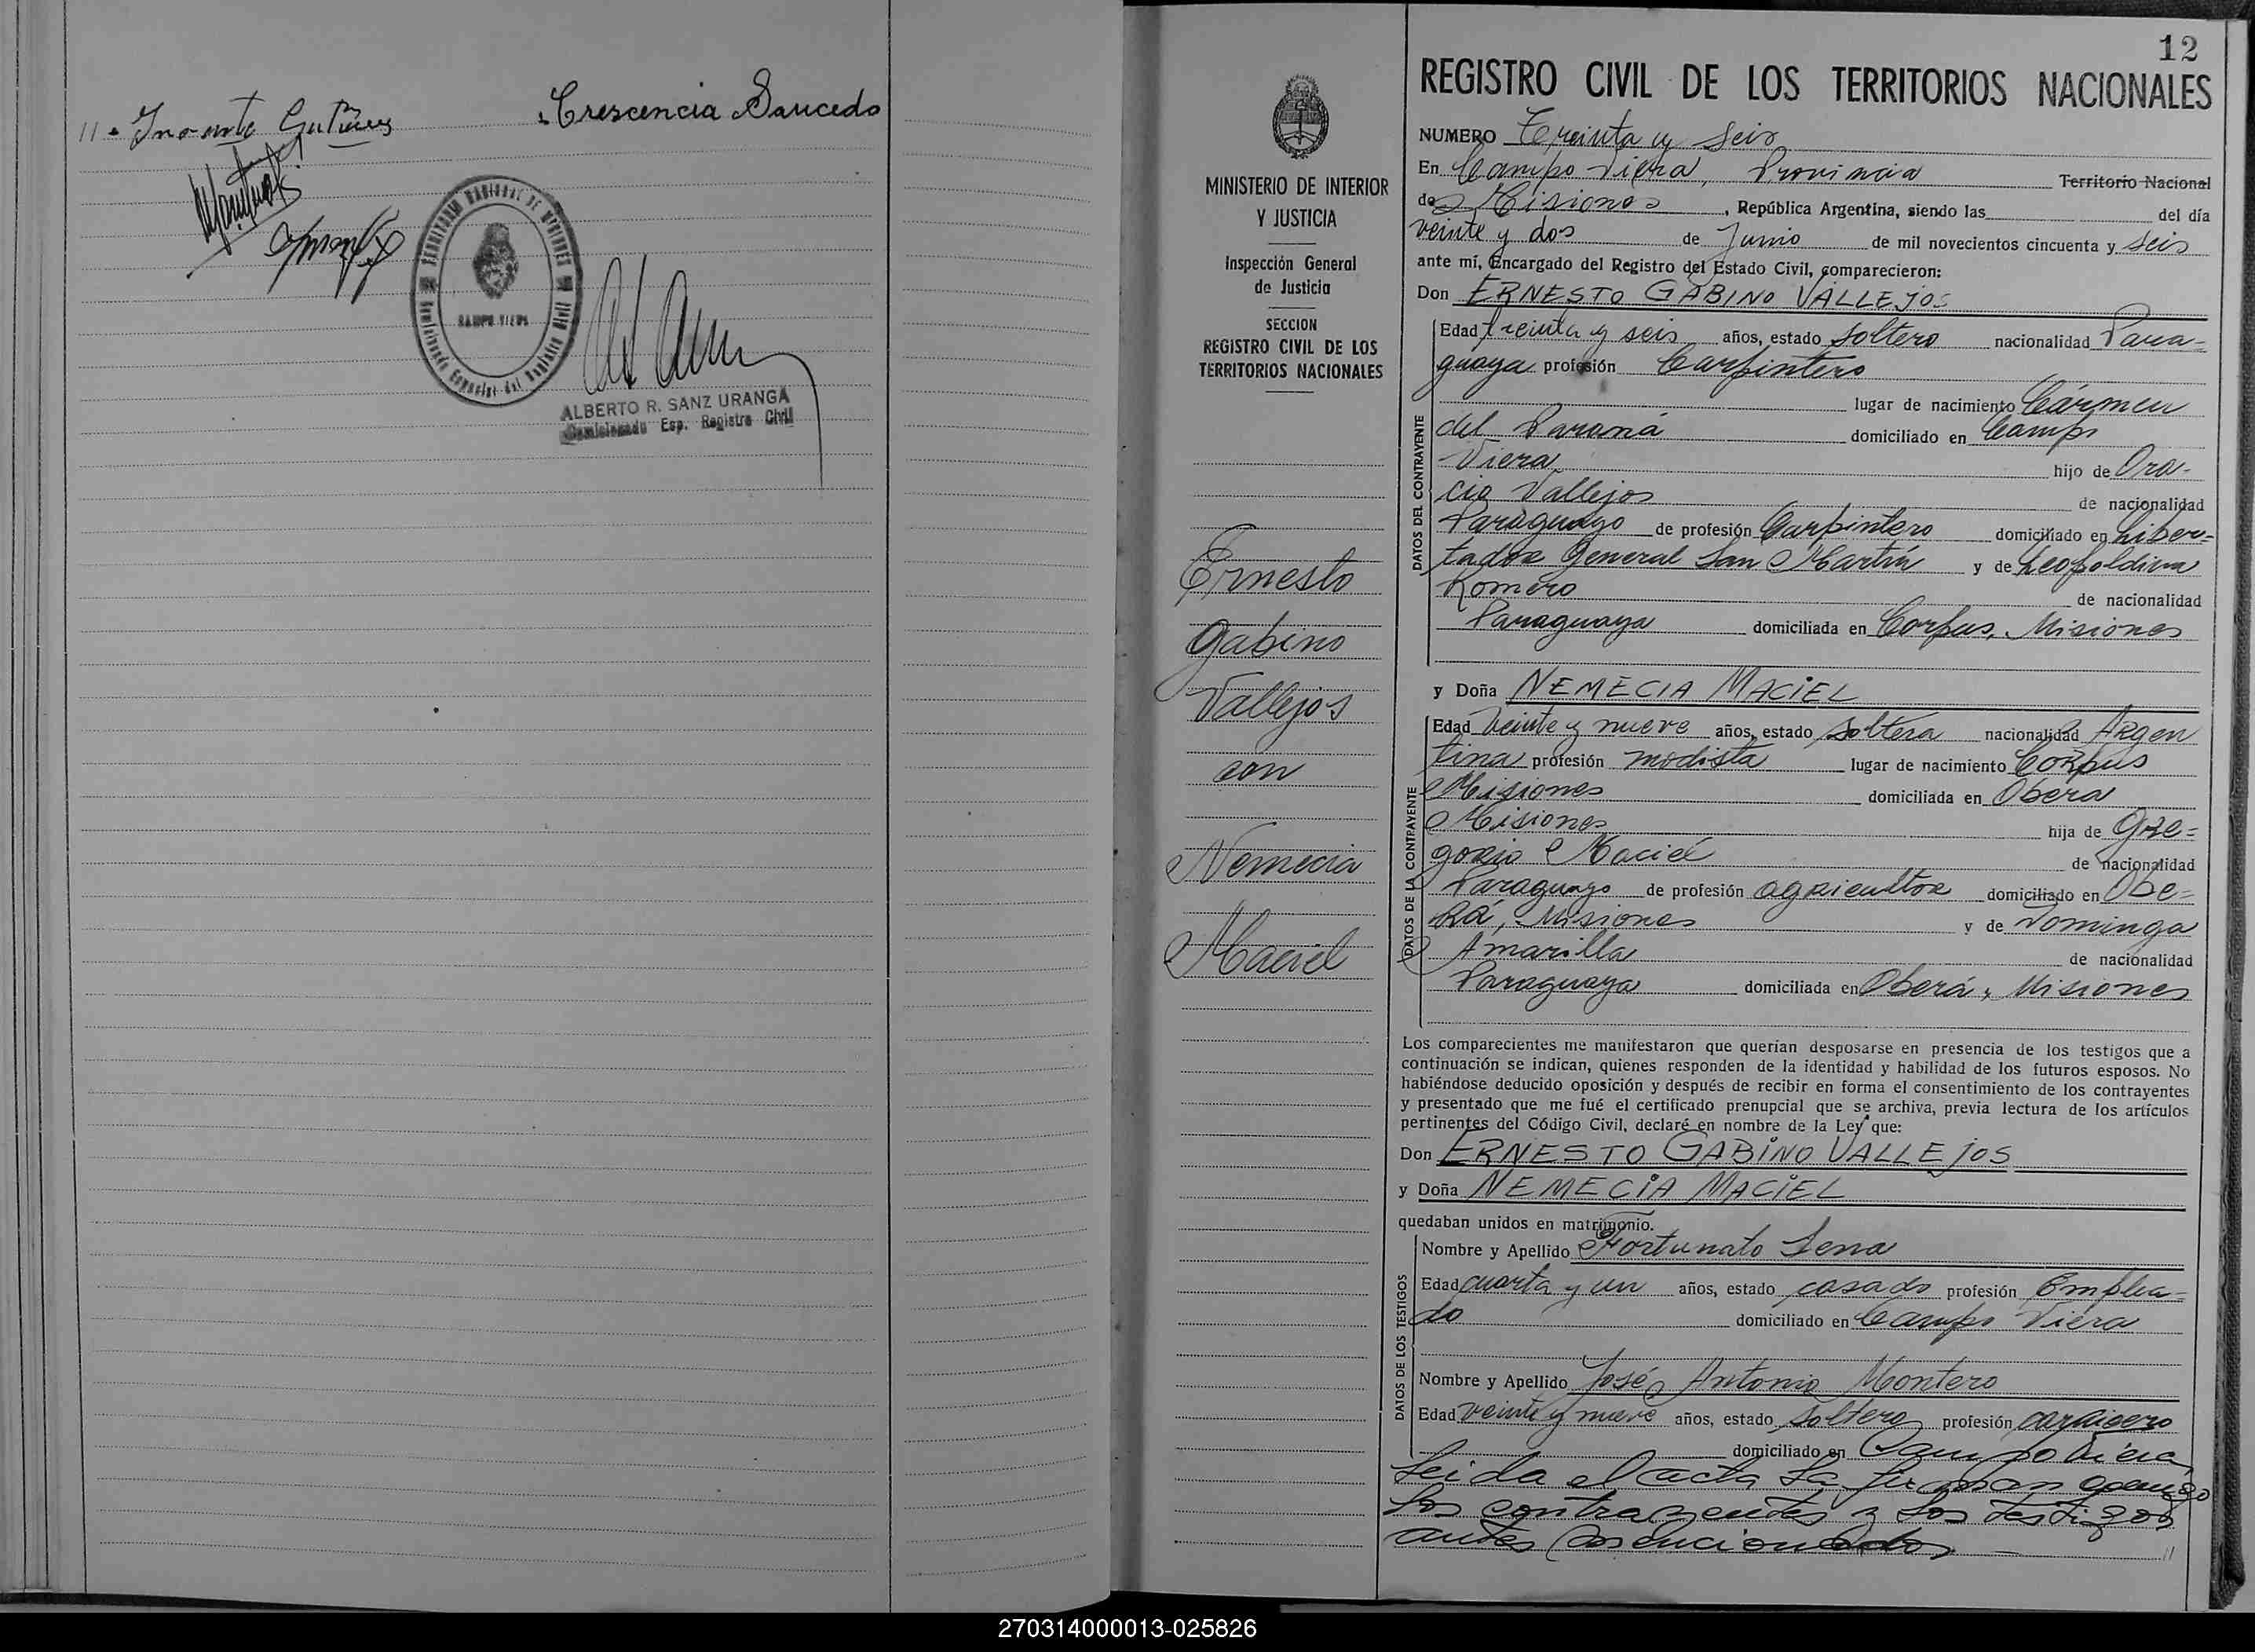 11 - Inocente Gutierrez Crescencia Saucedo
TERRITORIO NACIONAL DE MISIONES
CAMPO VIERA
ALBERTO R. SANZ URANGA
Comisionado Esp. Registro Civil
12
MINISTERIO DE INTERIOR
Y JUSTICIA
Inspección General
de Justicia
SECCION
REGISTRO CIVIL DE LOS
TERRITORIOS NACIONALES
Ernesto
Gabino
Vallejos
con
Nemecia
Maciel
REGISTRO CIVIL DE LOS TERRITORIOS NACIONALES
NUMERO Treinta y seis
En Campo Viera, Provincia Territorio Nacional
de Misiones, República Argentina, siendo las del día
veinte y dos de Junio de mil novecientos cincuenta y seis
ante mí, Encargado del Registro del Estado Civil, comparecieron:
Don ERNESTO GABINO VALLEJOS
DATOS DEL CONTRAYENTE
Edad treinta y seis años, estado soltero nacionalidad Para-
guaya profesión Carpintero
lugar de nacimiento Cármen
del Paraná domiciliado en Campo
Viera hijo de Ora-
cio Vallejos de nacionalidad
Paraguayo de profesión Carpintero domiciliado en Liber-
tador General San Martín y de Leopoldina
Romero de nacionalidad
Paraguaya domiciliada en Corpus, Misiones
y Doña NEMECIA MACIEL
DATOS DE LA CONTRAYENTE
Edad Veinte y nueve años, estado soltera nacionalidad Argen
tina profesión modista lugar de nacimiento Corpus
Misiones domiciliada en Oberá
Misiones hija de Gre=
gorio Maciel de nacionalidad
Paraguayo de profesión agricultor domiciliado en Obe=
rá, Misiones y de Dominga
Amarilla de nacionalidad
Paraguaya domiciliada en Oberá, Misiones
Los comparecientes me manifestaron que querían desposarse en presencia de los testigos que a
continuación se indican, quienes responden de la identidad y habilidad de los futuros esposos. No
habiéndose deducido oposición y después de recibir en forma el consentimiento de los contrayentes
y presentado que me fué el certificado prenupcial que se archiva, previa lectura de los artículos
pertinentes del Código Civil, declaré en nombre de la Ley que:
Don ERNESTO GABINO VALLEJOS
y Doña NEMECIA MACIEL
quedaban unidos en matrimonio.
DATOS DE LOS TESTIGOS
Nombre y Apellido Fortunato Sena
Edad cuarta y un años, estado casado profesión Emplea-
do domiciliado en Campo Viera
Nombre y Apellido José Antonio Montero
Edad veinte y nueve años, estado soltero profesión
domiciliado en Campo Viera
Leida el acta la firman conmigo
los contrayentes y los testigos
antes mencionados
270314000013-025826